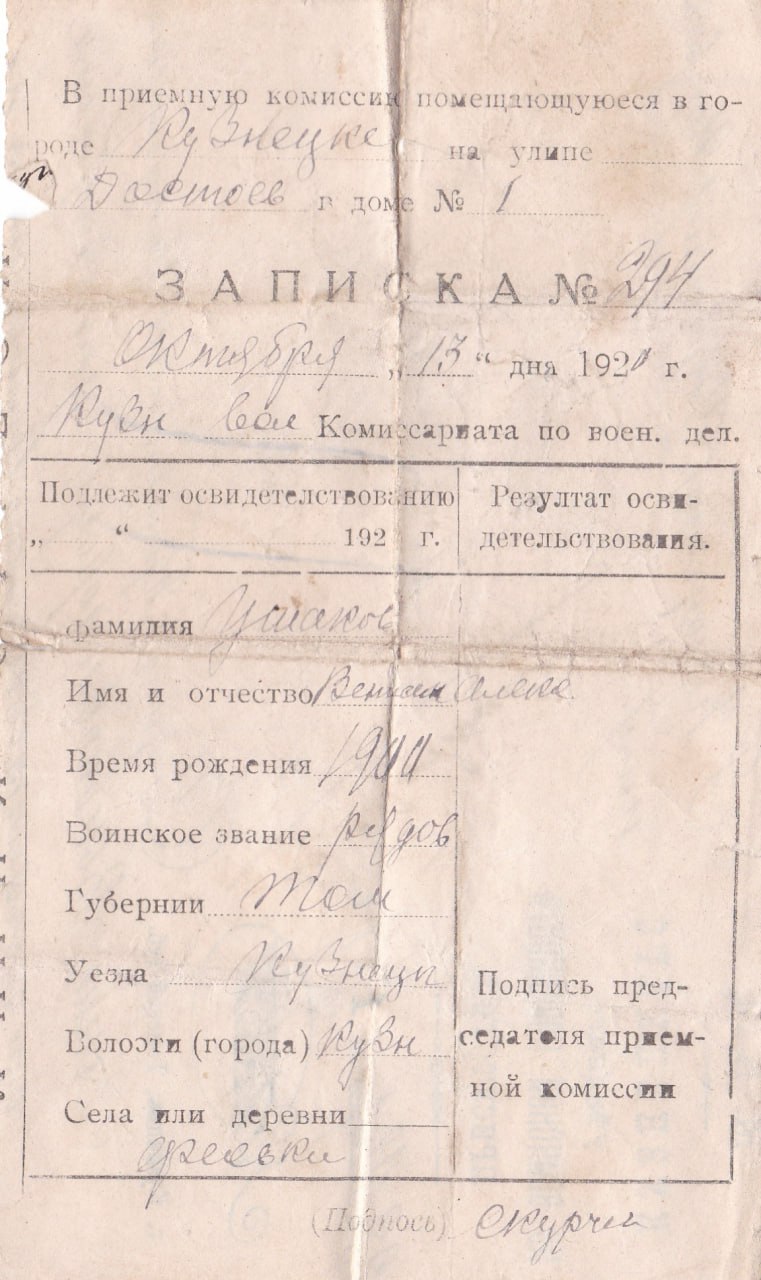 В приемную комиссию помещающуюеся в го-
роде Кузнецке на улице
Достоев в доме № 1
ЗАПИСКА № 294
Октября „13“ дня 1920 г.
Кузн вол Комиссариата по воен. дел.
Подлежит освидетелствованию
„ “ 192 г.
Резултат осви-
детельствования.
фамилия Ушаков
Имя и отчество Вениам Алекс
Время рождения 1900
Воинское звание рядов
Губернии Том
Уезда Кузнецк
Волости (города) Кузн
Села или деревни
Подпись пред-
седателя прием-
ной комиссии
(Подпось)